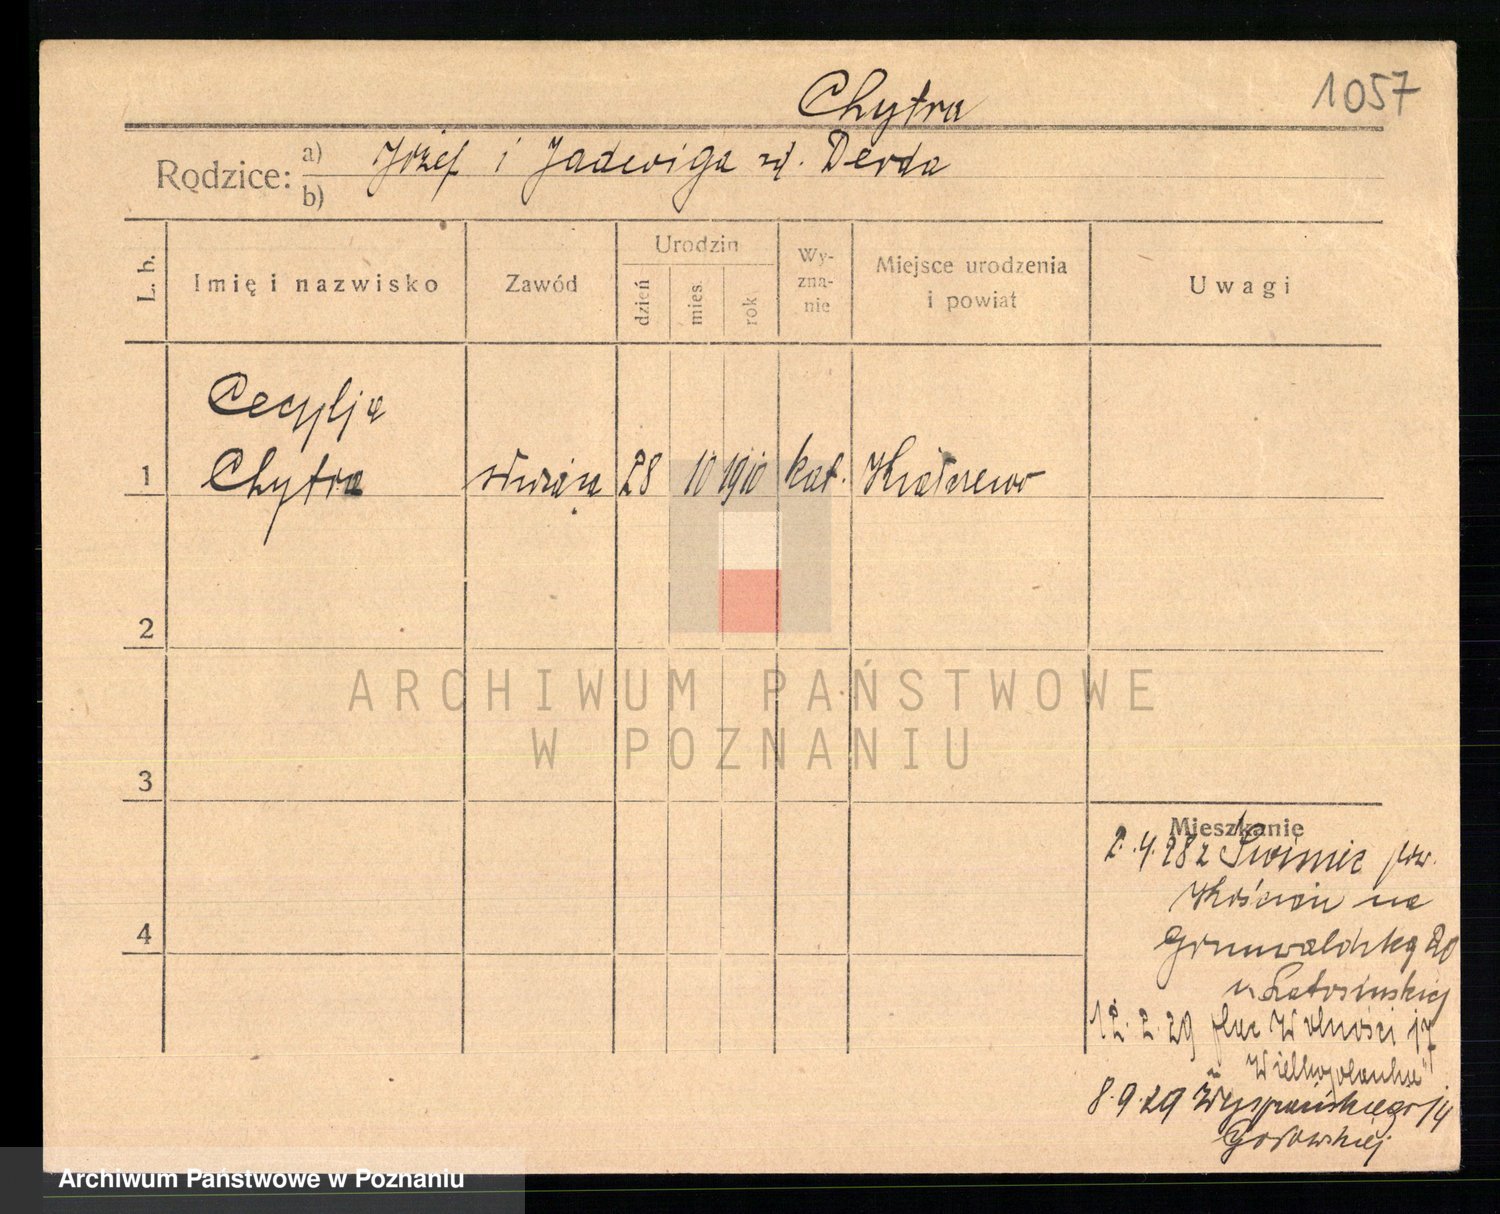 Chytra
1057
Rodzice: a) b)
Józef i Jadwiga zd. Derda
L. b.
Imię i nazwisko
Zawód
Urodzin
dzień
mies.
rok
Wy-
zna-
nie
Miejsce urodzenia
i powiat
Uwagi
Cecylja
1 Chytra służąca 28 10 1910 kat.
2
ARCHIWUM PAŃSTWOWE
W POZNANIU
3
Mieszkanie
2.4.28 z pow.
Kościan na
4
Grunwaldzką 20
u
12.2.29 plac Wolności 17
"Wielkopolanka"
8.9.29 Wyspiańskiego 14
Archiwum Państwowe w Poznaniu